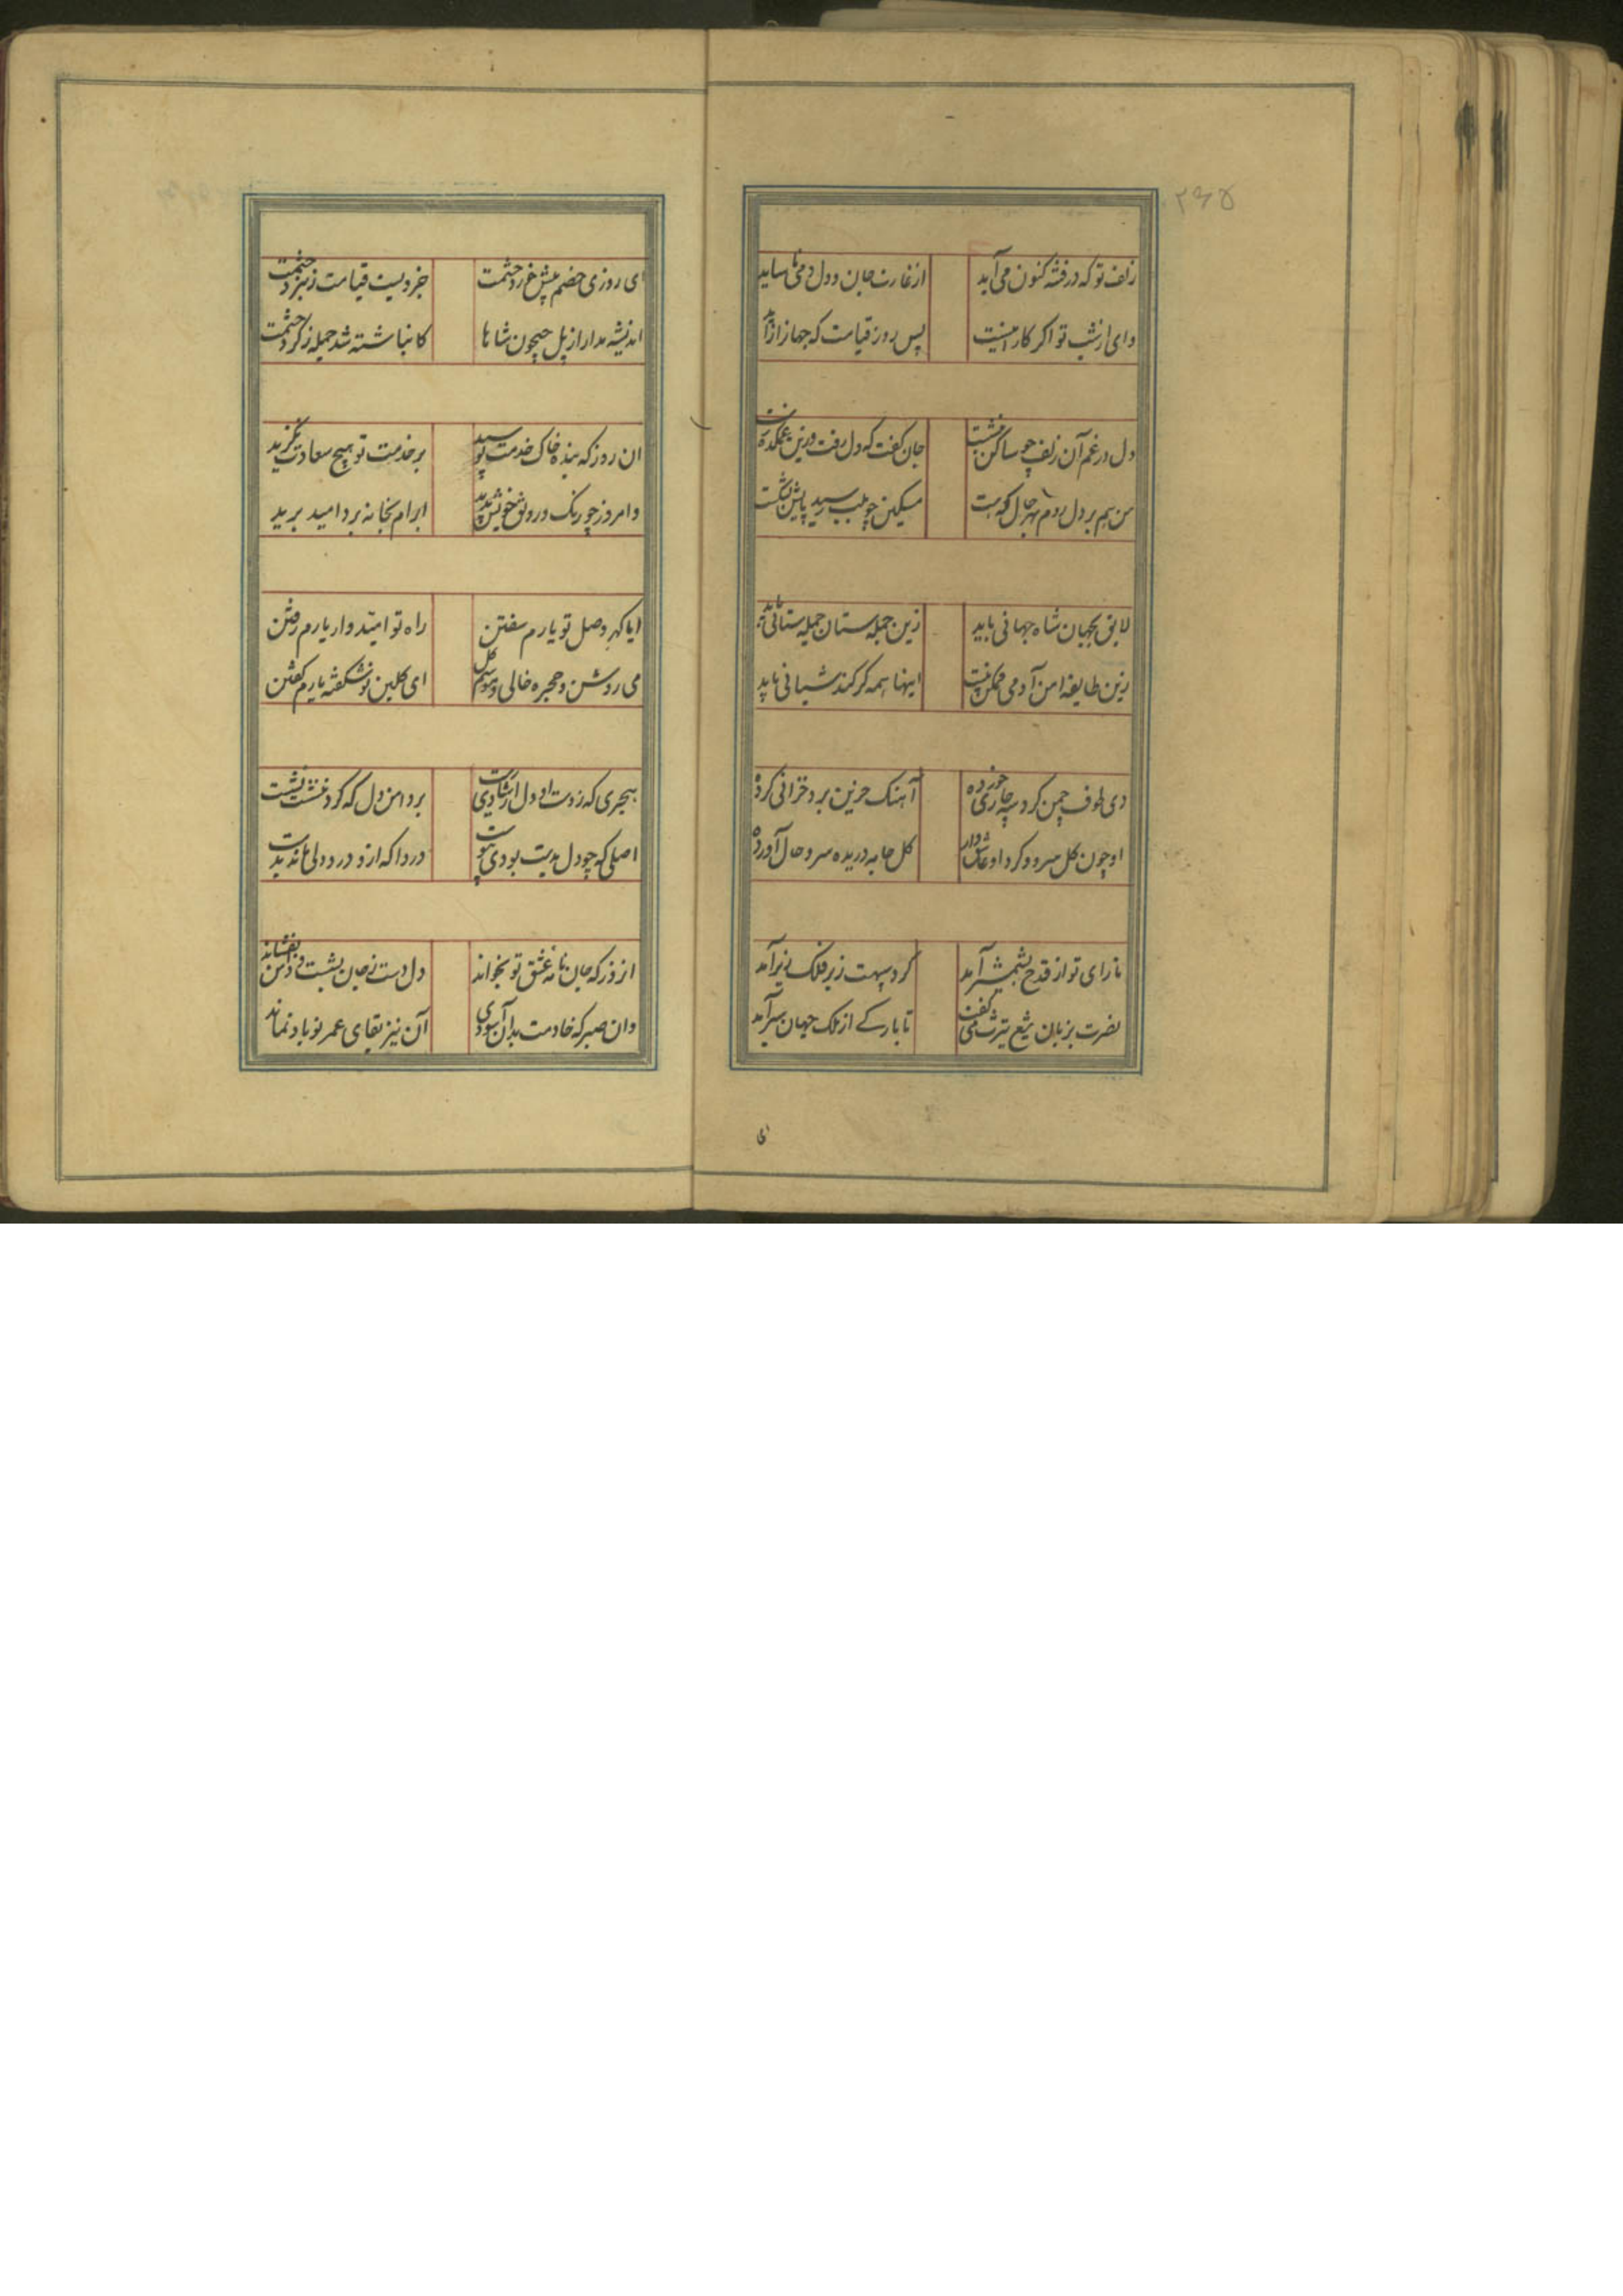 ۲۶۵
زلف تو که در فتنه کنون می آید
از غارت جان و دل دمی ناساید
وای از شب تو اگر کار اینست
پس روز قیامت که جهانرا زاید
دل در غم آن زلف چو ساکن بنشست
جان گفت که دل رفت و درین غمکده
من هم بر دل روم بهر حال که هست
مسکین چو بلب رسید پایش بشکست
لایق بجهان شاه جهانی باید
زین جمله ستان جمله ستانی باید
زین طایفه امن آدمی ممکن نیست
اینها همه گرگند شبانی باید
دی طوف چمن کرد سه چاری خورده
آهنگ حزین برد خزانی کرده
او چون گل و سرو و گرد او عاشق وار
گل جامه دریده سرو حال آورده
تا رای تو از قدح بشمشیر آمد
گرد سپهت ز بر فلک زیر آمد
نصرت بزبان تیغ تیزت می گفت
تا بارکے از ملک جهان سیر آمد
ای
ای روزی خصم پیش خورد حشمت
جزویست قیامت ز نبرد حشمت
اندیشه مدار از پل جیحون شاها
کانباشته شد جمله ز گرد حشمت
ان روز که بنده خاک خدمت بوسید
بر خدمت تو هیچ سعادت نگزید
وامروز چو رنگ و رونق خویش بدید
ابرام بخانه برد امید برید
ایا گهر وصل تو یارم سفتن
راه تو امید وار یارم رفتن
می روشن و حجره خالی و موسم گل
ای گلبن نو شکفته یارم گفتن
هجری که ز دست او دل از شادی شست
بر دامن دل که گرد ننشست نشست
اصلی که چو دل بدیت بودی پیوست
دردا که ازو درد دلی ماند بدست
از ذر که جان نامه عشق تو بخواند
دل دست ز جان بشست و دامن بفشاند
وان صبر که خادمت بدان آسودی
آن نیز بقای عمر تو باد نماند